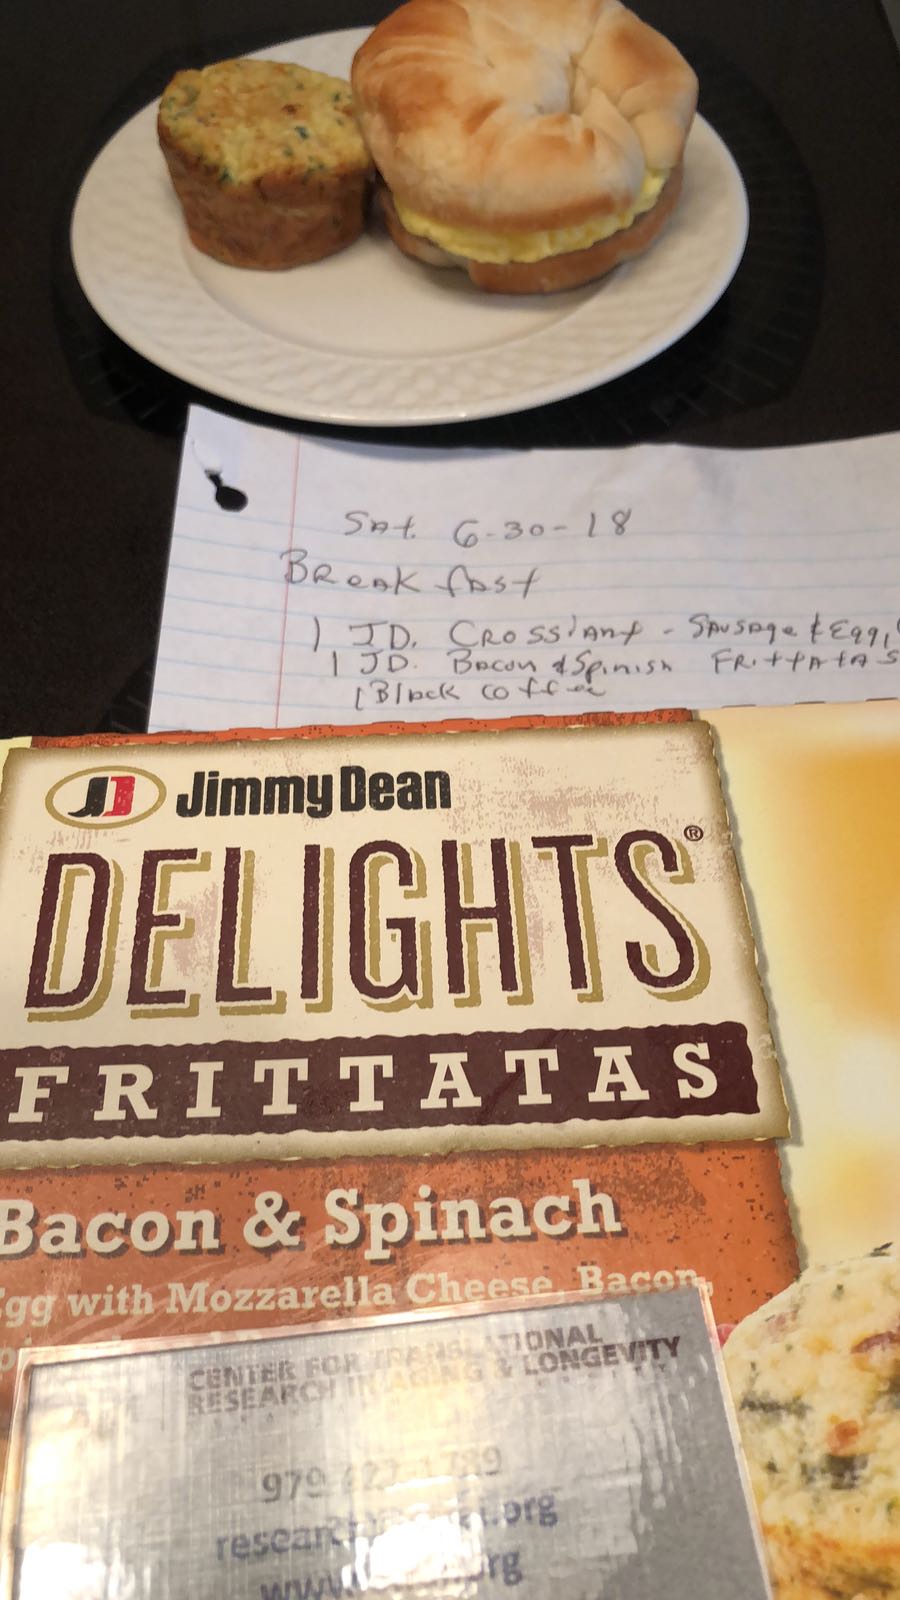 Sat. 6-30-18
Breakfast
1 JD. Crossiant - Sausage & Egg,
1 JD. Bacon & Spinish Frittatas
1 Black coffee
JD Jimmy Dean
DELIGHTS®
FRITTATAS
Bacon & Spinach
Egg with Mozzarella Cheese, Bacon,
CENTER FOR TRANSLATIONAL
RESEARCH IN AGING & LONGEVITY
979